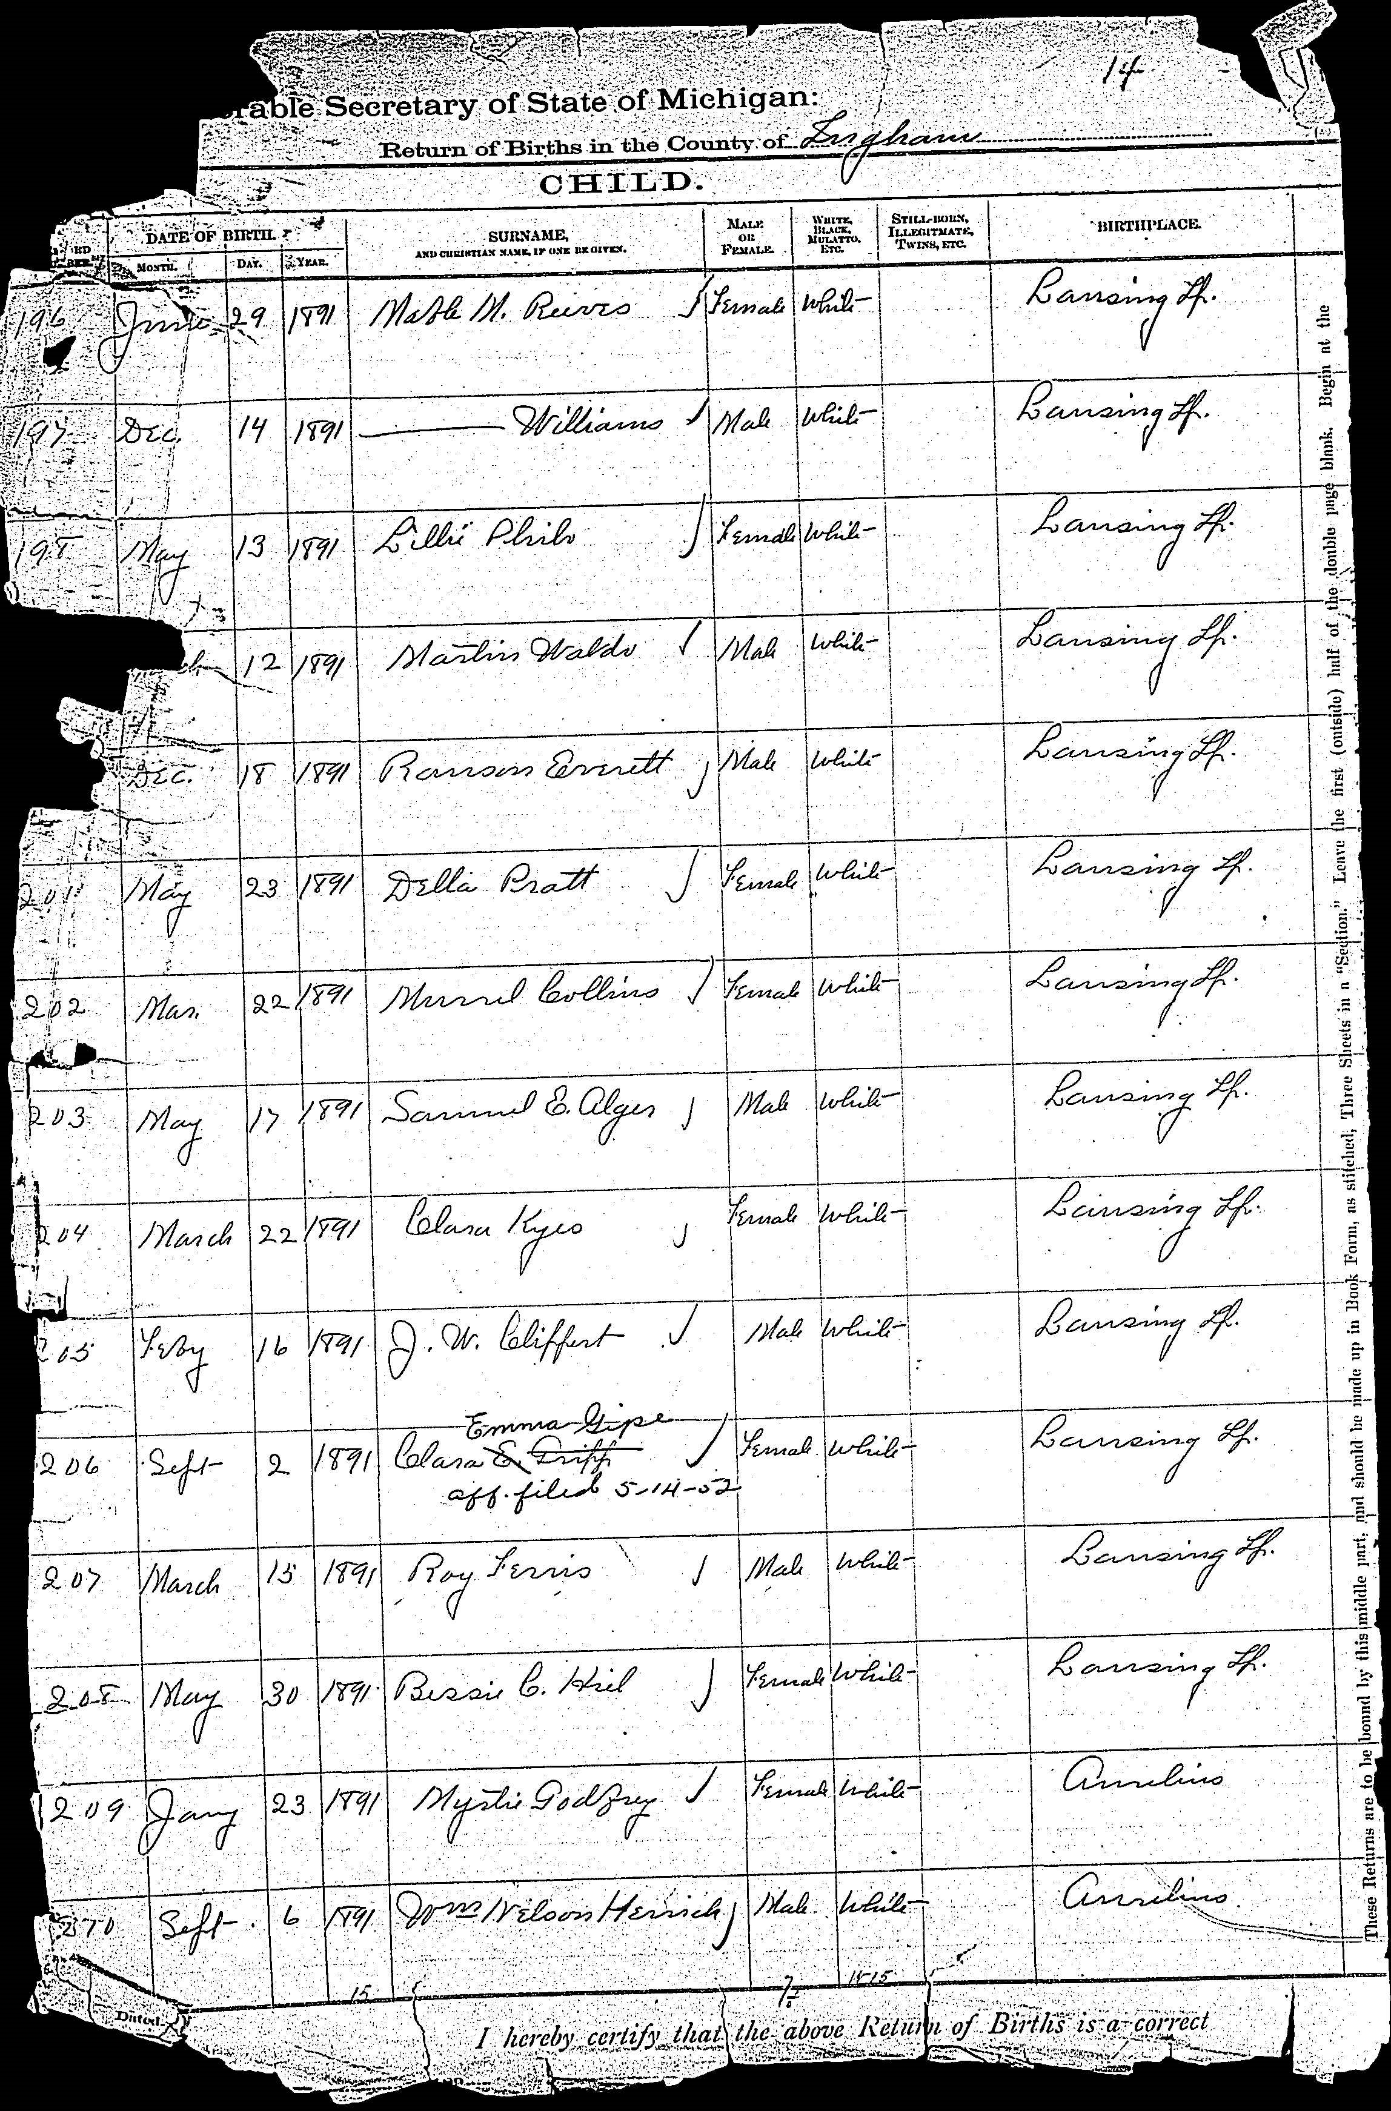 14
rable Secretary of State of Michigan:
Return of Births in the County of Ingham
CHILD.
DATE OF BIRTH. SURNAME, AND CHRISTIAN NAME, IF ONE BE GIVEN. MALE OR FEMALE. WHITE, BLACK, MULATTO, ETC. STILL-BORN, ILLEGITMATE, TWINS, ETC. BIRTHPLACE.
MONTH. DAY. YEAR.
196 June 29 1891 Mable M. Reeves Female White Lansing Tp.
197 Dec. 14 1891 Williams Male White Lansing Tp.
198 May 13 1891 Lillie Philo Female White Lansing Tp.
12 1891 Martin Waldo Male White Lansing Tp.
Dec. 18 1891 Ransom Everett Male White Lansing Tp.
201 May 23 1891 Della Pratt Female White Lansing Tp.
202 Mar. 22 1891 Murrel Collins Female White Lansing Tp.
203 May 17 1891 Samuel E. Alger Male White Lansing Tp.
204 March 22 1891 Clara Kyes Female White Lansing Tp.
205 Feby 16 1891 J. W. Cliffert Male White Lansing Tp.
Emma Gipe
206 Sept 2 1891 Clara E. Griff Female White Lansing Tp.
aff. filed 5-14-52
207 March 15 1891 Roy Ferris Male White Lansing Tp.
208 May 30 1891 Bessie C. Hiel Female White Lansing Tp.
209 Jany 23 1891 Myrtie Godfrey Female White Aurelius
210 Sept 6 1891 Wm Nelson Herrick Male White Aurelius
15 15
Dated
I hereby certify that the above Return of Births is a correct
These Returns are to be bound by this middle part, and should be made up in Book Form, as stitched, Three Sheets in a "Section." Leave the first (outside) half of the double page blank. Begin at the